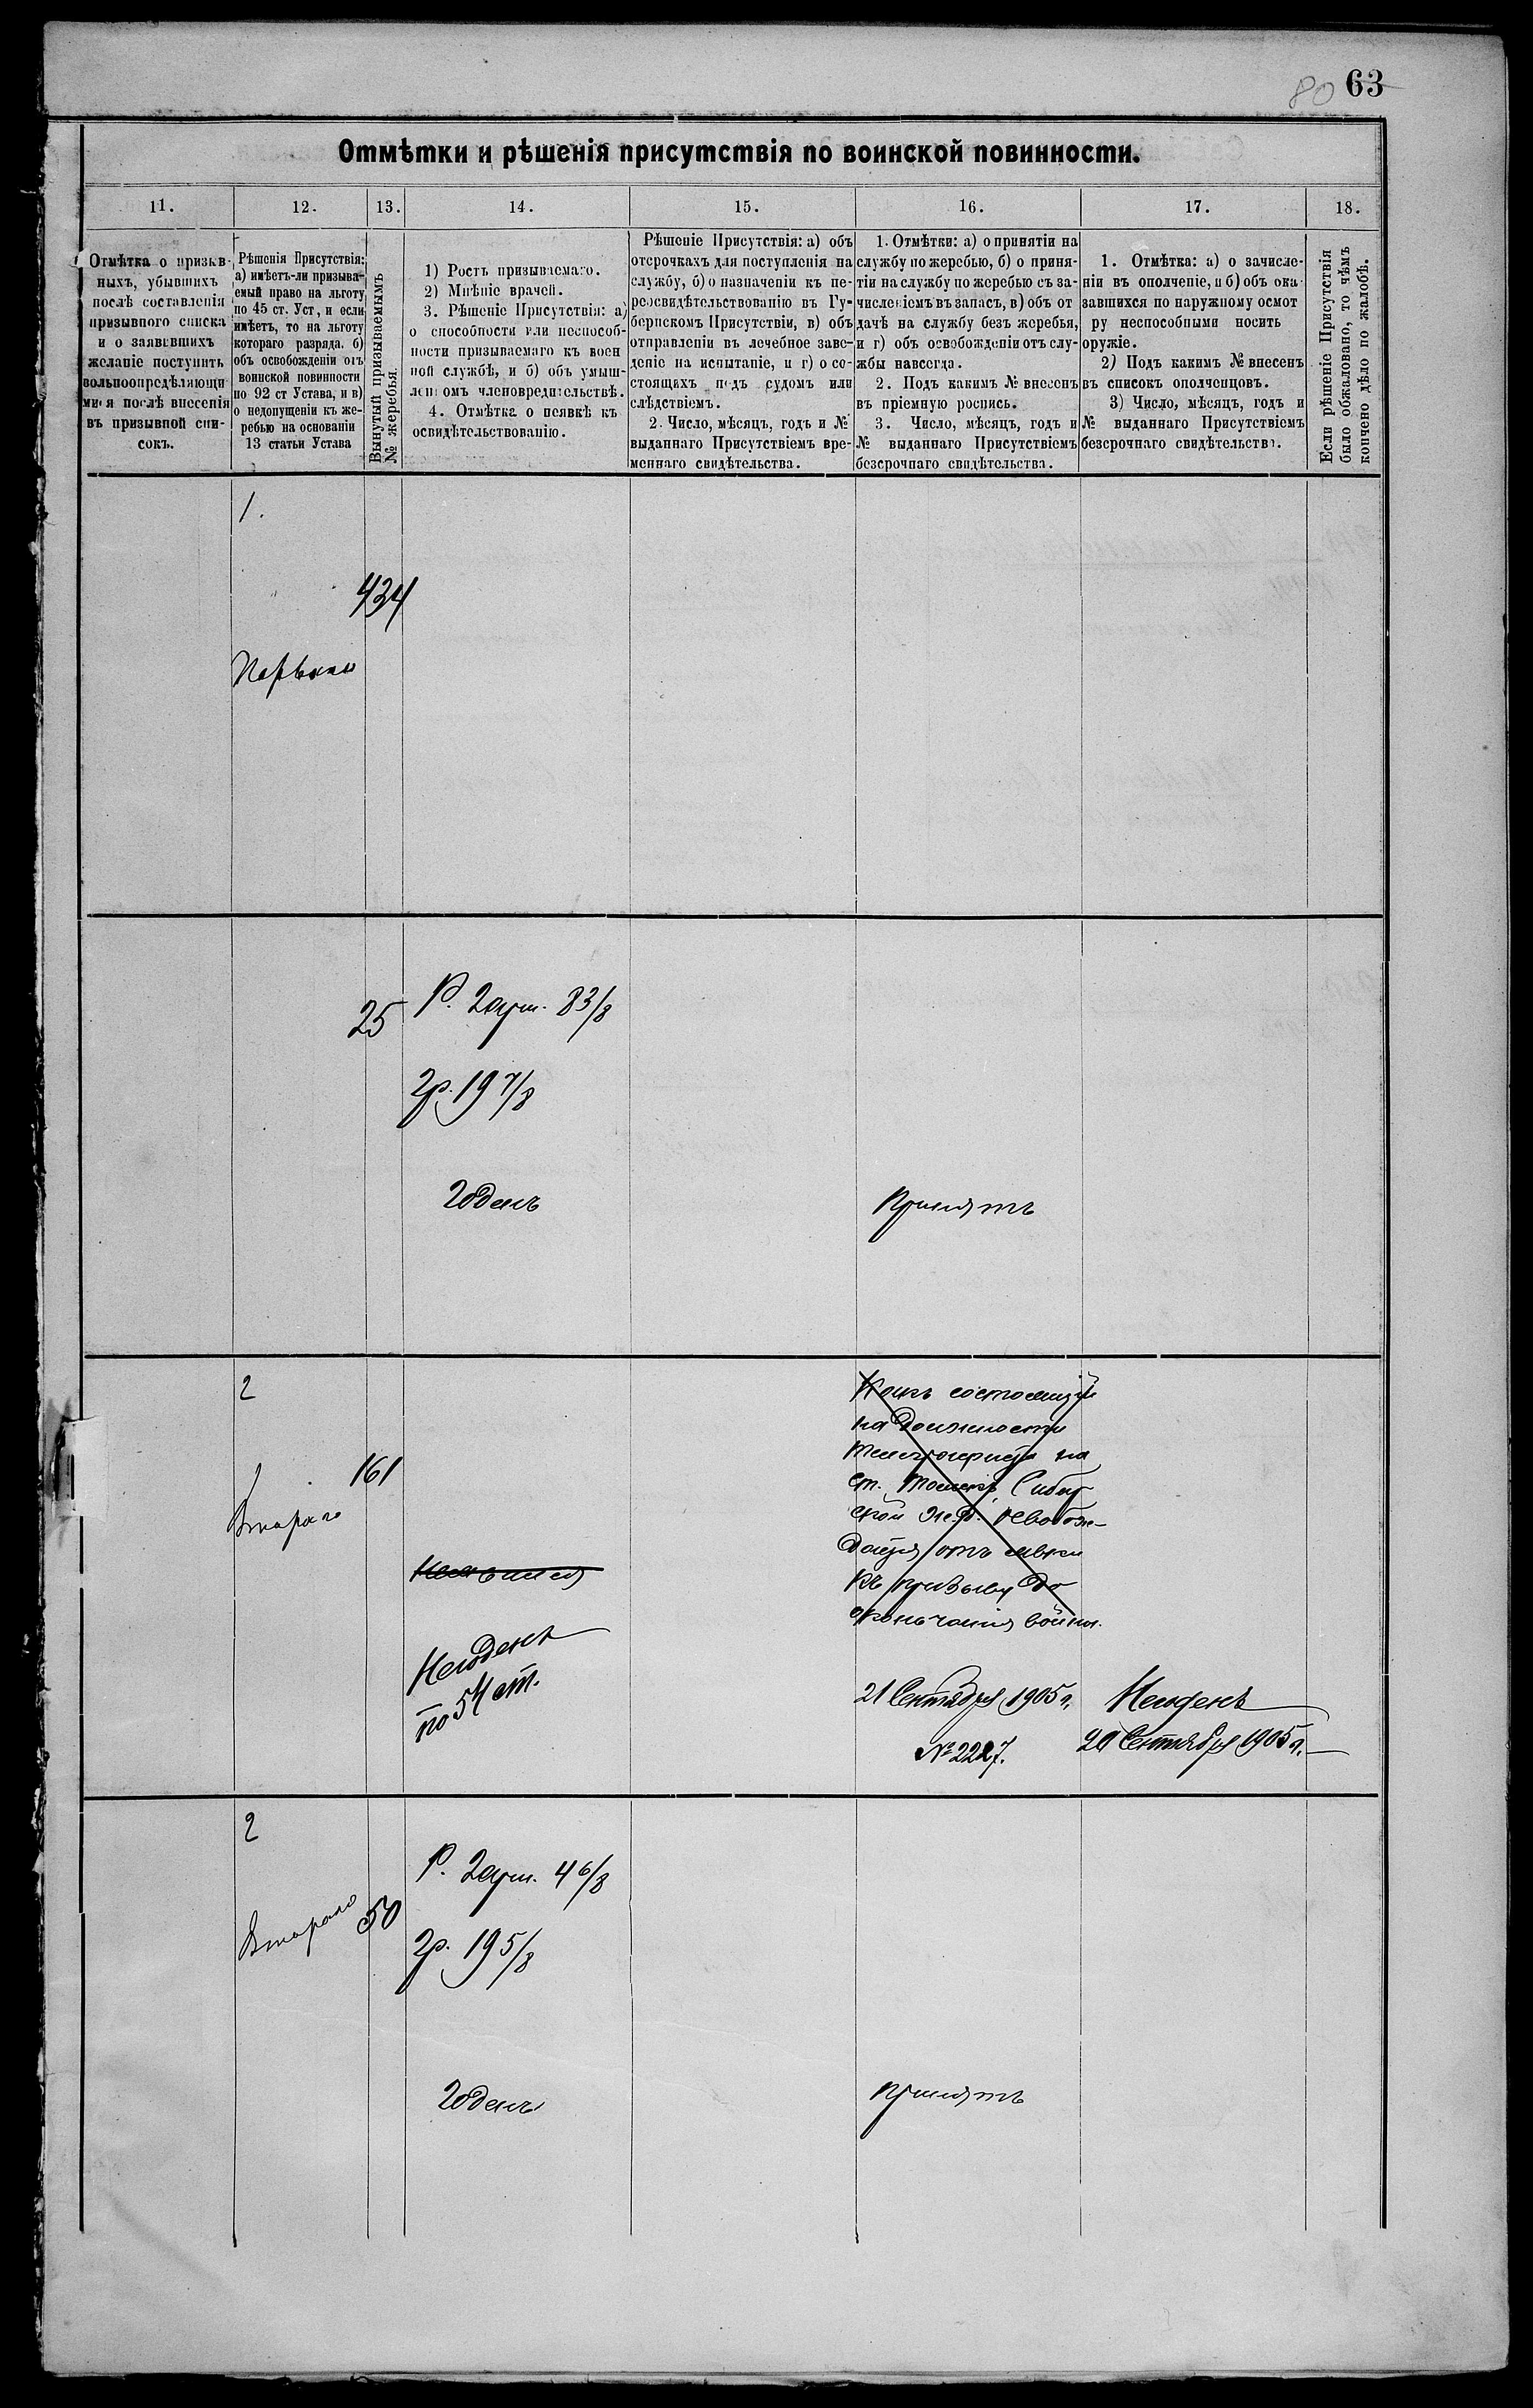 80 63
Отмѣтки и рѣшенія присутствія по воинской повинности.
11. 12. 13. 14. 15. 16. 17. 18.
Отмѣтка о призыв-
ныхъ, убывшихъ
послѣ составленія
призывного списка
и о заявившихъ
желаніе поступить
вольноопредѣляющи
мися послѣ внесенія
въ призывной спи-
сокъ.
Рѣшенія Присутствія:
а) имѣетъ-ли призыва-
емый право на льготу
по 45 ст. Уст, и если
имѣетъ, то на льготу
котораго разряда. б)
объ освобожденіи отъ
воинской повинности
по 92 ст Устава, и в)
о недопущеніи къ же-
ребью на основаніи
13 статьи Устава
Вынутый призываемымъ
№ жеребья.
1) Ростъ призываемаго.
2) Мнѣніе врачей.
3. Рѣшеніе Присутствія: а)
о способности или неспособ-
ности призываемаго къ воен
ной службѣ, и б) объ умыш-
ленномъ членовредительствѣ.
4. Отмѣтка о неявкѣ къ
освидѣтельствованію.
Рѣшеніе Присутствія: а) объ
отсрочкахъ для поступленія на
службу, б) о назначеніи къ пе-
реосвидѣтельствованію въ Гу-
бернскомъ Присутствіи, в) объ
отправленіи въ лечебное заве-
деніе на испытаніе, и г) о со-
стоящихъ подъ судомъ или
слѣдствіемъ.
2. Число, мѣсяцъ, годъ и №
выданнаго Присутствіемъ вре-
меннаго свидѣтельства.
1. Отмѣтки: а) о принятіи на
службу по жеребью, б) о приня-
тіи на службу по жеребью съ за-
численіемъ въ запасъ, в) объ от
дачѣ на службу безъ жеребья,
и г) объ освобожденіи отъ слу-
жбы навсегда.
2. Подъ какимъ № внесенъ
въ пріемную роспись.
3. Число, мѣсяцъ, годъ и
№ выданнаго Присутствіемъ
безсрочнаго свидѣтельства.
1. Отмѣтка: а) о зачисле-
ніи въ ополченіе, и б) объ ока
завшихся по наружному осмот
ру неспособными носить
оружіе.
2) Подъ какимъ № внесенъ
въ списокъ ополченцовъ.
3) Число, мѣсяцъ, годъ и
№ выданнаго Присутствіемъ
безсрочнаго свидѣтельства.
Если рѣшеніе Присутствія
было обжаловано, то чѣмъ
кончено дѣло по жалобѣ.
1.
434
25
Р. 2 арш. 8 3/8
гр. 19 7/8
Годенъ
Принятъ
2
161
Втораго
Неявился
Негоденъ
по 54 ст.
Какъ состоящій
на должности
телеграфиста на
ст. Томскъ, Сибир
ской ж. д. освобож-
дается отъ явки
къ призыву до
окончанія войны.
21 Сентября 1905 г.
№ 2227.
Негоденъ
20 Сентября 1905 г.
2
Втораго
50
Р. 2 арш. 4 6/8
гр. 19 5/8
Годенъ
Принятъ